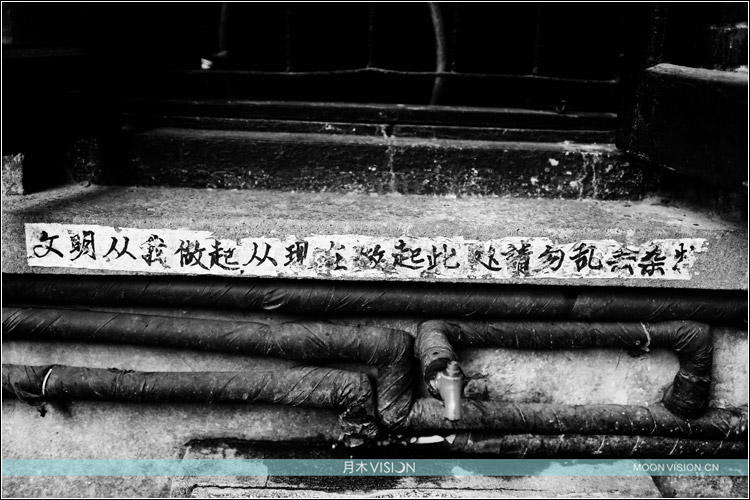 文明从我做起从现在做起此处請勿乱丟杂物
月木VISION
MOON VISION CN